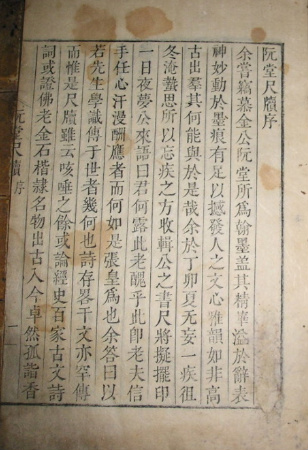 阮堂尺牘序
余嘗竊慕金公阮堂所爲翰墨盖其精華溢於辭表
神妙動於墨痕有足以撼發人之文心雅韻如非高
古出羣其何能與於是哉余於丁卯夏无妄一疾徂
冬淹蟄思所以忘疾之方收輯公之書尺將擬擺印
一日夜夢公來語曰君何露此老醜乎此即老夫信
手任心汗漫酬應者而何如是張皇爲也余答曰以
若先生學識傳于世者幾何也詩存畧干文亦罕傳
而惟是尺牘雖云咳唾之餘或論經史百家古文詩
詞或證佛老金石楷隷名物出古入今卓然孤詣香
阮堂尺牘 序 一